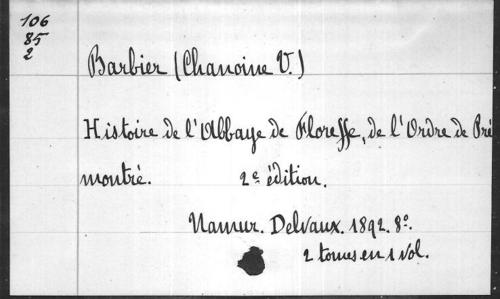 106
85
2
Barbier (Chanoine V.)
Histoire de l'Abbaye de Floreffe, de l'Ordre de Pré
montré. 2e édition.
Namur. Delvaux. 1892. 8o.
2 tomes en 1 vol.